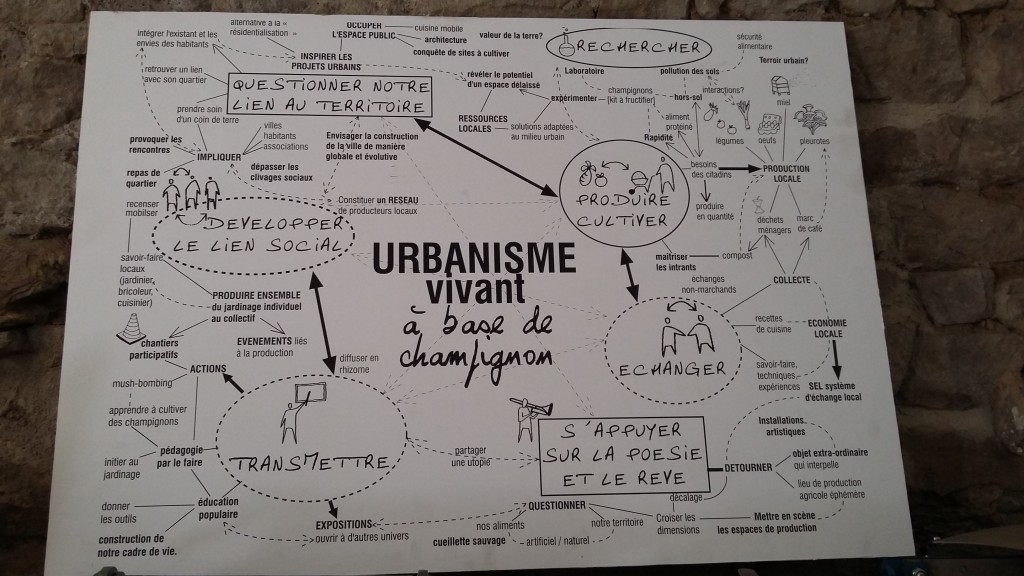 alternative a la «
résidentialisation »
intégrer l'existant et les
envies des habitants
OCCUPER
L'ESPACE PUBLIC
cuisine mobile
architecture
conquête de sites à cultiver
INSPIRER LES
PROJETS URBAINS
valeur de la terre?
RECHERCHER
sécurité
alimentaire
Terroir urbain?
retrouver un lien
avec son quartier
QUESTIONNER NOTRE
LIEN AU TERRITOIRE
révéler le potentiel
d'un espace délaissé
Laboratoire
pollution des sols
expérimenter
champignons
[kit a fructifier]
hors-sol
interactions?
miel
prendre soin
d'un coin de terre
RESSOURCES
LOCALES
solutions adaptées
au milieu urbain
aliment
protéiné
Rapidité
légumes
oeufs
pleurotes
provoquer les
rencontres
IMPLIQUER
villes
habitants
associations
dépasser les
clivages sociaux
Envisager la construction
de la ville de manière
globale et évolutive
repas de
quartier
PRODUIRE
CULTIVER
besoins
des citadins
PRODUCTION
LOCALE
produire
en quantité
recenser
mobilser
Constituer un RESEAU
de producteurs locaux
DEVELOPPER
LE LIEN SOCIAL
déchets
ménagers
marc
de café
savoir-faire
locaux
(jardinier,
bricoleur,
cuisinier)
URBANISME
vivant
à base de
champignon
maîtriser
les intrants
compost
échanges
non-marchands
COLLECTE
PRODUIRE ENSEMBLE
du jardinage individuel
au collectif
chantiers
participatifs
EVENEMENTS liés
à la production
ECHANGER
recettes
de cuisine
ECONOMIE
LOCALE
savoir-faire,
techniques,
expériences
SEL système
d'échange local
diffuser en
rhizome
ACTIONS
mush-bombing
apprendre à cultiver
des champignons
TRANSMETTRE
pédagogie
par le faire
initier au
jardinage
partager
une utopie
S'APPUYER
SUR LA POESIE
ET LE REVE
Installations
artistiques
DETOURNER
objet extra-ordinaire
qui interpelle
lieu de production
agricole éphémère
décalage
éducation
populaire
donner
les outils
construction de
notre cadre de vie.
EXPOSITIONS
ouvrir à d'autres univers
QUESTIONNER
nos aliments
notre territoire
cueillette sauvage
artificiel / naturel
Croiser les
dimensions
Mettre en scène
les espaces de production